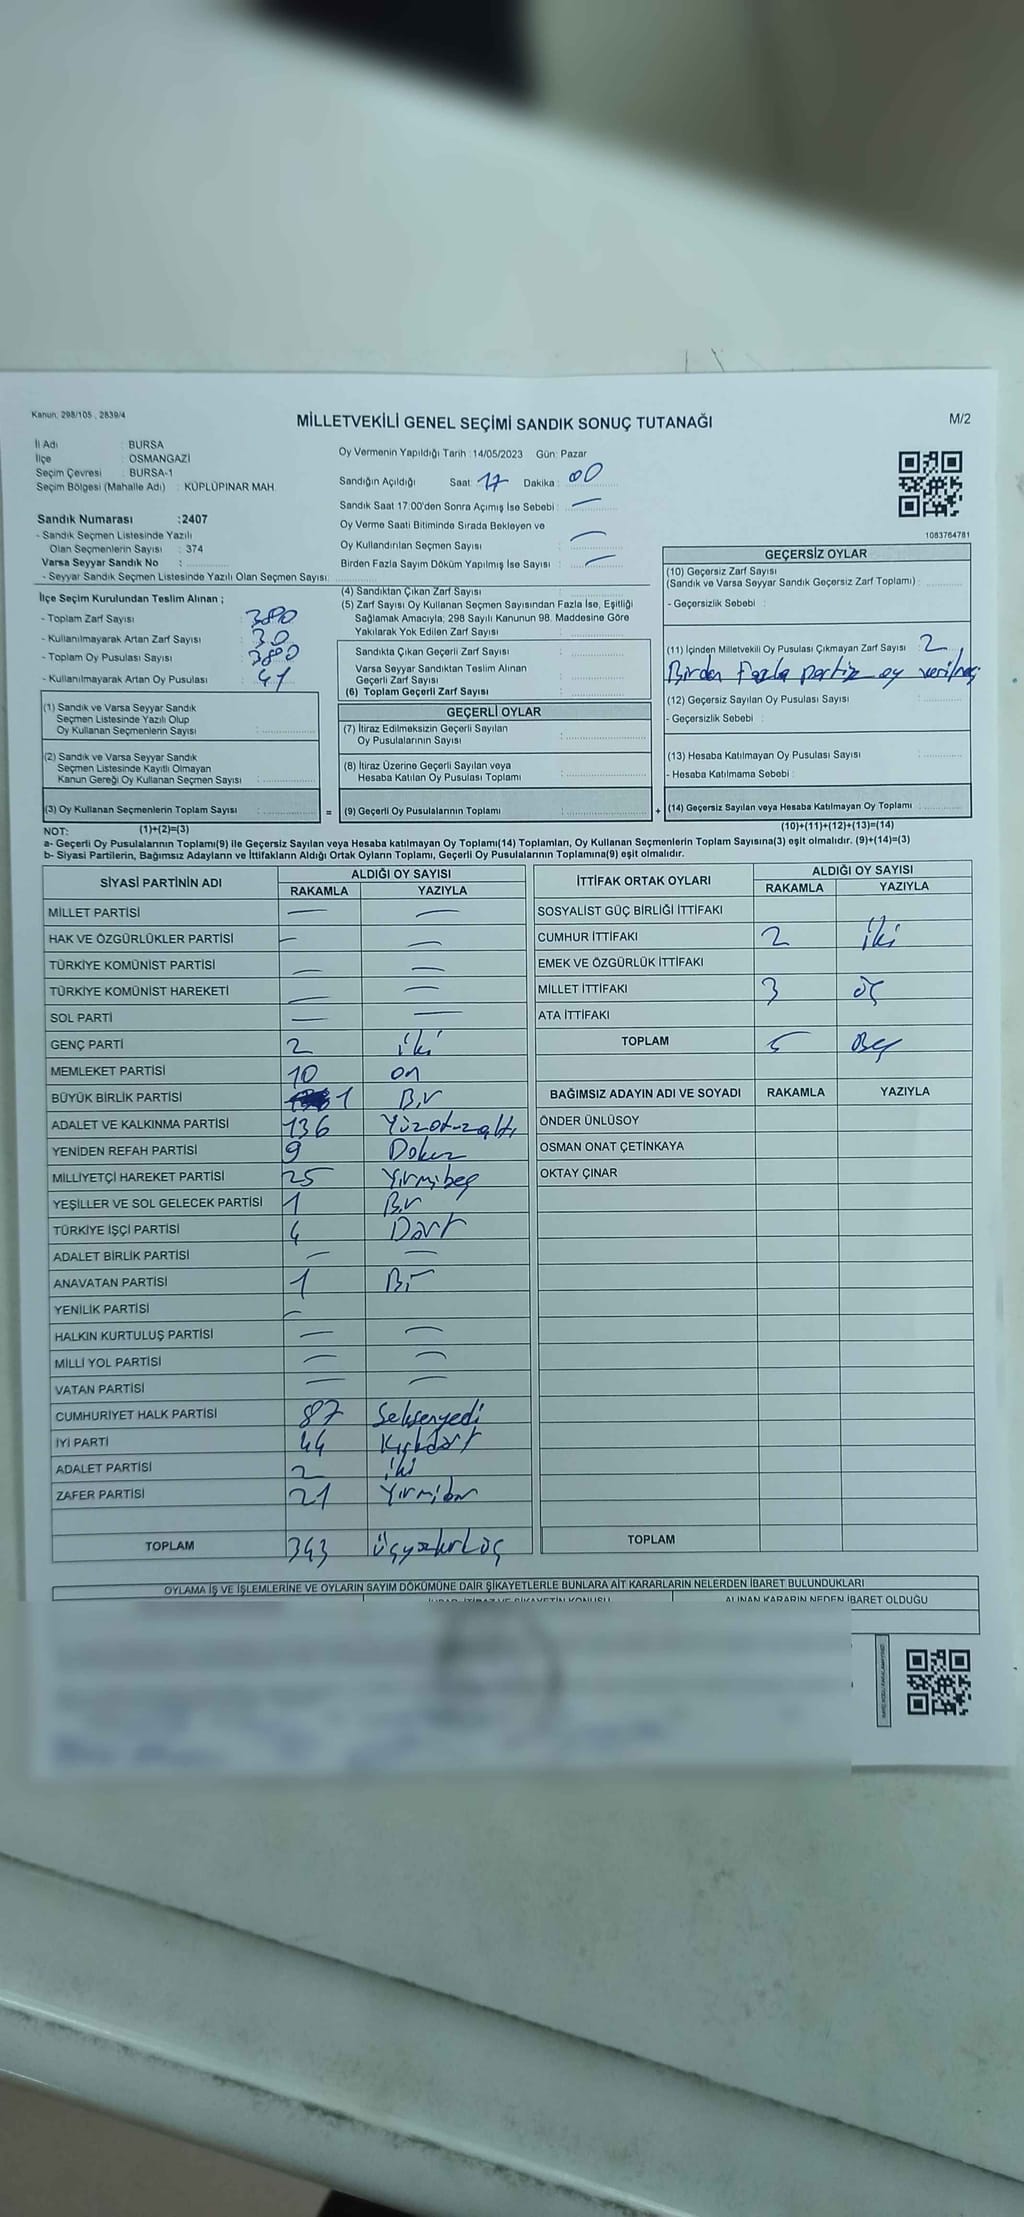 Kanun, 298/105 , 2839/4
MİLLETVEKİLİ GENEL SEÇİMİ SANDIK SONUÇ TUTANAĞI
M/2
İl Adı : BURSA
İlçe : OSMANGAZİ
Seçim Çevresi : BURSA-1
Seçim Bölgesi (Mahalle Adı) : KÜPLÜPINAR MAH.
Sandık Numarası :2407
- Sandık Seçmen Listesinde Yazılı
Olan Seçmenlerin Sayısı : 374
Varsa Seyyar Sandık No :
- Seyyar Sandık Seçmen Listesinde Yazılı Olan Seçmen Sayısı:
Oy Vermenin Yapıldığı Tarih :14/05/2023 Gün: Pazar
Sandığın Açıldığı Saat: 17 Dakika : 00
Sandık Saat 17:00'den Sonra Açımış İse Sebebi : —
Oy Verme Saati Bitiminde Sırada Bekleyen ve
Oy Kullandırılan Seçmen Sayısı : —
Birden Fazla Sayım Döküm Yapılmış İse Sayısı : —
1083764781
İlçe Seçim Kurulundan Teslim Alınan ;
- Toplam Zarf Sayısı : 380
- Kullanılmayarak Artan Zarf Sayısı : 30
- Toplam Oy Pusulası Sayısı : 380
- Kullanılmayarak Artan Oy Pusulası : 41
(1) Sandık ve Varsa Seyyar Sandık
Seçmen Listesinde Yazılı Olup
Oy Kullanan Seçmenlerin Sayısı :
(2) Sandık ve Varsa Seyyar Sandık
Seçmen Listesinde Kayıtlı Olmayan
Kanun Gereği Oy Kullanan Seçmen Sayısı :
(3) Oy Kullanan Seçmenlerin Toplam Sayısı :
(4) Sandıktan Çıkan Zarf Sayısı :
(5) Zarf Sayısı Oy Kullanan Seçmen Sayısından Fazla İse, Eşitliği
Sağlamak Amacıyla, 298 Sayılı Kanunun 98. Maddesine Göre
Yakılarak Yok Edilen Zarf Sayısı :
Sandıkta Çıkan Geçerli Zarf Sayısı :
Varsa Seyyar Sandıktan Teslim Alınan
Geçerli Zarf Sayısı :
(6) Toplam Geçerli Zarf Sayısı :
GEÇERLİ OYLAR
(7) İtiraz Edilmeksizin Geçerli Sayılan
Oy Pusulalarının Sayısı :
(8) İtiraz Üzerine Geçerli Sayılan veya
Hesaba Katılan Oy Pusulası Toplamı :
= (9) Geçerli Oy Pusulalarının Toplamı :
GEÇERSİZ OYLAR
(10) Geçersiz Zarf Sayısı
(Sandık ve Varsa Seyyar Sandık Geçersiz Zarf Toplamı) :
- Geçersizlik Sebebi :
(11) İçinden Milletvekili Oy Pusulası Çıkmayan Zarf Sayısı : 2
Birden Fazla partiye oy verilmiş
(12) Geçersiz Sayılan Oy Pusulası Sayısı :
- Geçersizlik Sebebi :
(13) Hesaba Katılmayan Oy Pusulası Sayısı :
- Hesaba Katılmama Sebebi :
+ (14) Geçersiz Sayılan veya Hesaba Katılmayan Oy Toplamı :
NOT: (1)+(2)=(3)
(10)+(11)+(12)+(13)=(14)
a- Geçerli Oy Pusulalarının Toplamı(9) ile Geçersiz Sayılan veya Hesaba katılmayan Oy Toplamı(14) Toplamları, Oy Kullanan Seçmenlerin Toplam Sayısına(3) eşit olmalıdır. (9)+(14)=(3)
b- Siyasi Partilerin, Bağımsız Adayların ve İttifakların Aldığı Ortak Oyların Toplamı, Geçerli Oy Pusulalarının Toplamına(9) eşit olmalıdır.
SİYASİ PARTİNİN ADI ALDIĞI OY SAYISI
RAKAMLA YAZIYLA
MİLLET PARTİSİ — —
HAK VE ÖZGÜRLÜKLER PARTİSİ — —
TÜRKİYE KOMÜNİST PARTİSİ — —
TÜRKİYE KOMÜNİST HAREKETİ — —
SOL PARTİ — —
GENÇ PARTİ 2 iki
MEMLEKET PARTİSİ 10 on
BÜYÜK BİRLİK PARTİSİ 1 Bir
ADALET VE KALKINMA PARTİSİ 136 Yüzotuzaltı
YENİDEN REFAH PARTİSİ 9 Dokuz
MİLLİYETÇİ HAREKET PARTİSİ 25 Yirmibeş
YEŞİLLER VE SOL GELECEK PARTİSİ 1 Bir
TÜRKİYE İŞÇİ PARTİSİ 4 Dört
ADALET BİRLİK PARTİSİ — —
ANAVATAN PARTİSİ 1 Bir
YENİLİK PARTİSİ —
HALKIN KURTULUŞ PARTİSİ — —
MİLLİ YOL PARTİSİ — —
VATAN PARTİSİ — —
CUMHURİYET HALK PARTİSİ 87 Seksenyedi
İYİ PARTİ 44 Kırkdört
ADALET PARTİSİ 2 iki
ZAFER PARTİSİ 21 Yirmibir
TOPLAM 343 Üçyüzkırküç
İTTİFAK ORTAK OYLARI ALDIĞI OY SAYISI
RAKAMLA YAZIYLA
SOSYALİST GÜÇ BİRLİĞİ İTTİFAKI
CUMHUR İTTİFAKI 2 iki
EMEK VE ÖZGÜRLÜK İTTİFAKI
MİLLET İTTİFAKI 3 üç
ATA İTTİFAKI
TOPLAM 5 Beş
BAĞIMSIZ ADAYIN ADI VE SOYADI RAKAMLA YAZIYLA
ÖNDER ÜNLÜSOY
OSMAN ONAT ÇETİNKAYA
OKTAY ÇINAR
TOPLAM
OYLAMA İŞ VE İŞLEMLERİNE VE OYLARIN SAYIM DÖKÜMÜNE DAİR ŞİKAYETLERLE BUNLARA AİT KARARLARIN NELERDEN İBARET BULUNDUKLARI
ALINAN KARARIN NEDEN İBARET OLDUĞU